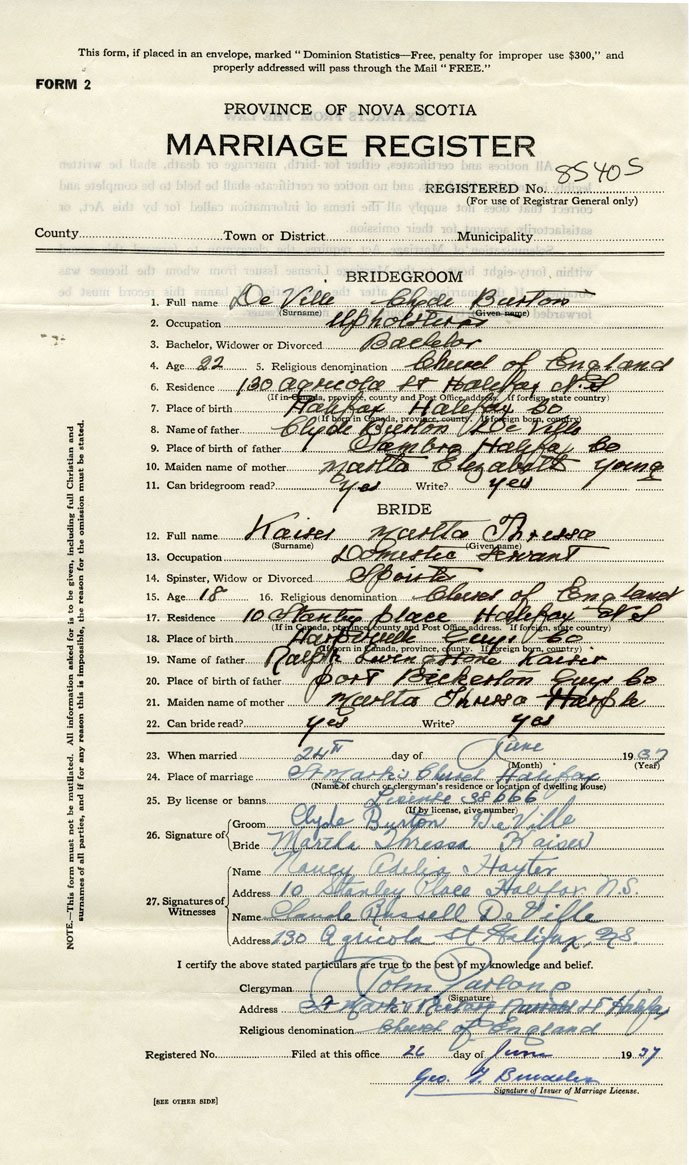 This form, if placed in an envelope, marked "Dominion Statistics—Free, penalty for improper use $300," and
properly addressed will pass through the Mail "FREE."
FORM 2
PROVINCE OF NOVA SCOTIA
MARRIAGE REGISTER
REGISTERED No. 85405
(For use of Registrar General only)
County Town or District Municipality
BRIDEGROOM
1. Full name De Ville Clyde Burton
(Surname) (Given name)
2. Occupation Upholsterer
3. Bachelor, Widower or Divorced Bachelor
4. Age 22 5. Religious denomination Church of England
6. Residence 130 Agricola St Halifax N.S
(If in Canada, province, county and Post Office address. If foreign, state country)
7. Place of birth Halifax Halifax Co
(If born in Canada, province, county. If foreign born, country)
8. Name of father Clyde Burton De Ville
9. Place of birth of father Sambro Halifax Co
10. Maiden name of mother Martha Elezabeth Young
11. Can bridegroom read? yes Write? yes
BRIDE
12. Full name Kaiser Martha Thressa
(Surname) (Given name)
13. Occupation Domestic Servant
14. Spinster, Widow or Divorced Spinster
15. Age 18 16. Religious denomination Church of England
17. Residence 10 Stanley place Halifax N S
(If in Canada, province, county and Post Office address. If foreign, state country)
18. Place of birth Guys Co
(If born in Canada, province, county. If foreign born, country)
19. Name of father Ralph Livingstone Kaiser
20. Place of birth of father port Bickerton Guys Co
21. Maiden name of mother Martha Thressa
22. Can bride read? yes Write? yes
23. When married 24th day of June 1937
(Month) (Year)
24. Place of marriage St Mark's Church Halifax
(Name of church or clergyman's residence or location of dwelling house)
25. By license or banns License 38666
(If by license, give number)
26. Signature of Groom Clyde Burton DeVille
Bride Martha Thressa Kaiser
27. Signatures of Witnesses
Name Nancy Adelia Hayter
Address 10 Stanley Place Halifax N.S.
Name Claude Russell DeVille
Address 130 Agricola St Halifax, N.S.
I certify the above stated particulars are true to the best of my knowledge and belief.
Clergyman John Furlong
(Signature)
Address St Mark's Rectory Russell St Halifax
Religious denomination Church of England
Registered No. Filed at this office 26 day of June 1937
Geo.
Signature of Issuer of Marriage License.
[SEE OTHER SIDE]
NOTE.—This form must not be mutilated. All information asked for is to be given, including full Christian and
surnames of all parties, and if for any reason this is impossible, the reason for the omission must be stated.